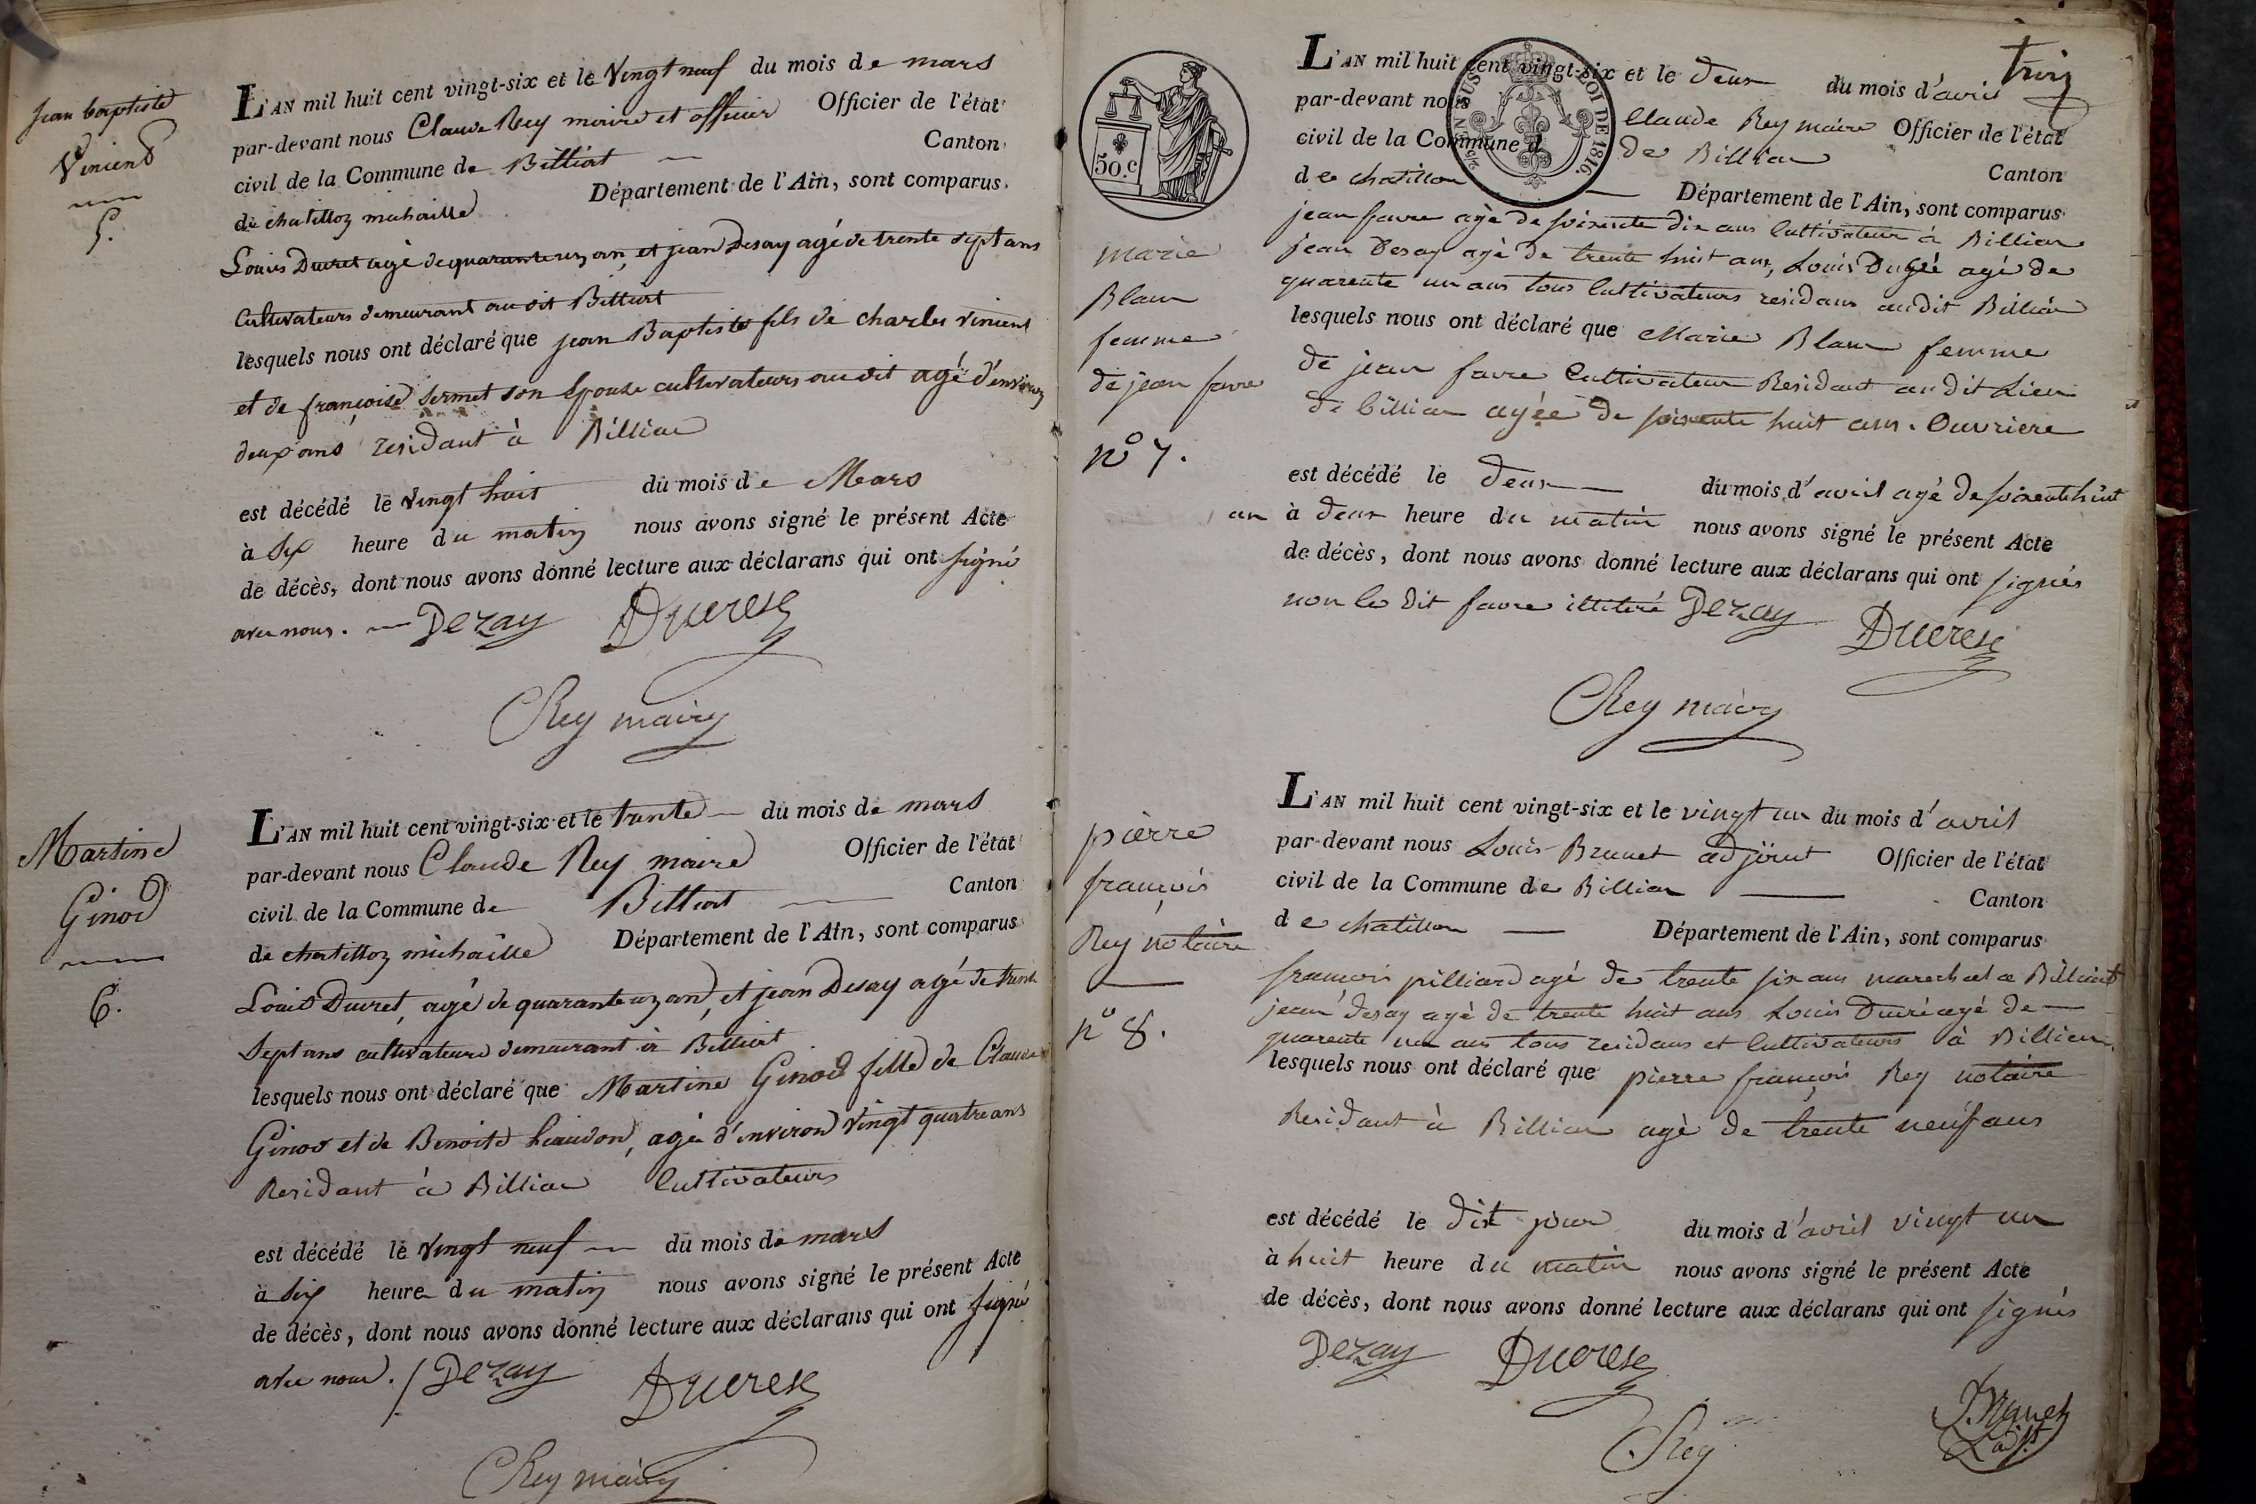 jean baptiste
Vincent
5.
L'AN mil huit cent vingt-six et le Vingt neuf du mois de mars
par-devant nous Claude Rey maire et officier Officier de l'état
civil de la Commune de Billiat Canton
de chatillon michaille Département de l'Ain, sont comparus
Louis Ducret agé de quarante un an, et jean Desay agé de trente sept ans
Cultivateurs demeurant au dit Billiat
lesquels nous ont déclaré que jean Baptiste fils de charles vincent
et de françoise Sermet son Epouse cultivateurs au dit agé d'environ
deux ans residant à Billiat
est décédé le vingt huit du mois de Mars
à Six heure du matin nous avons signé le présent Acte
de décès, dont nous avons donné lecture aux déclarans qui ont signé
avec nous. Dezay Ducret
CRey maire
Martine
Ginod
6.
L'AN mil huit cent vingt-six et le trente du mois de mars
par-devant nous Claude Rey maire Officier de l'état
civil de la Commune de Billiat Canton
de chatillon michaille Département de l'Ain, sont comparus
Louis Ducret, agé de quarante un an, et jean Desay agé de trente
Sept ans cultivateurs demeurant à Billiat
lesquels nous ont déclaré que Martine Ginod fille de Claude
Ginod et de Benoite, agée d'environ vingt quatre ans
Residant à Billiat Cultivateurs
est décédé le vingt neuf du mois de mars
à Six heure du matin nous avons signé le présent Acte
de décès, dont nous avons donné lecture aux déclarans qui ont signé
avec nous. Dezay Ducret
CRey maire
50.c
LOI DE 1816.
trois
marie
Blanc
femme
de jean favre
n° 7.
L'AN mil huit cent vingt-six et le deux du mois d'avril
par-devant nous Claude Rey maire Officier de l'état
civil de la Commune d de Billiat Canton
de chatillon Département de l'Ain, sont comparus
jean favre agé de soixente dix ans Cultivateur à Billiat
jean Desay agé de trente huit ans, Louis Ducré agé de
quarente un ans tous Cultivateurs residans audit Billiat
lesquels nous ont déclaré que Marie Blanc femme
de jean favre Cultivateur Residant au dit Lieu
de billiat agée de soixente huit ans. Ouvriere
est décédé le deux du mois d'avril agé de soixente huit
an à deux heure du matin nous avons signé le présent Acte
de décès, dont nous avons donné lecture aux déclarans qui ont signés
non le dit favre illiteré Dezay Ducret
CRey maire
pierre
françois
Rey notaire
n° 8.
L'AN mil huit cent vingt-six et le vingt un du mois d'avril
par-devant nous Louis Brunet adjoint Officier de l'état
civil de la Commune de Billiat Canton
de chatillon Département de l'Ain, sont comparus
françois pilliard agé de trente six ans marechal a Billiat
jean desay agé de trente huit ans Louis Ducré agé de
quarente un an tous residans et Cultivateurs à Billiat
lesquels nous ont déclaré que pierre françois Rey notaire
Residant à Billiat agé de trente neuf ans
est décédé le dit jour du mois d'avril vingt un
à huit heure du matin nous avons signé le présent Acte
de décès, dont nous avons donné lecture aux déclarans qui ont signés
Dezay Ducret
CRey
Brunet
adjt